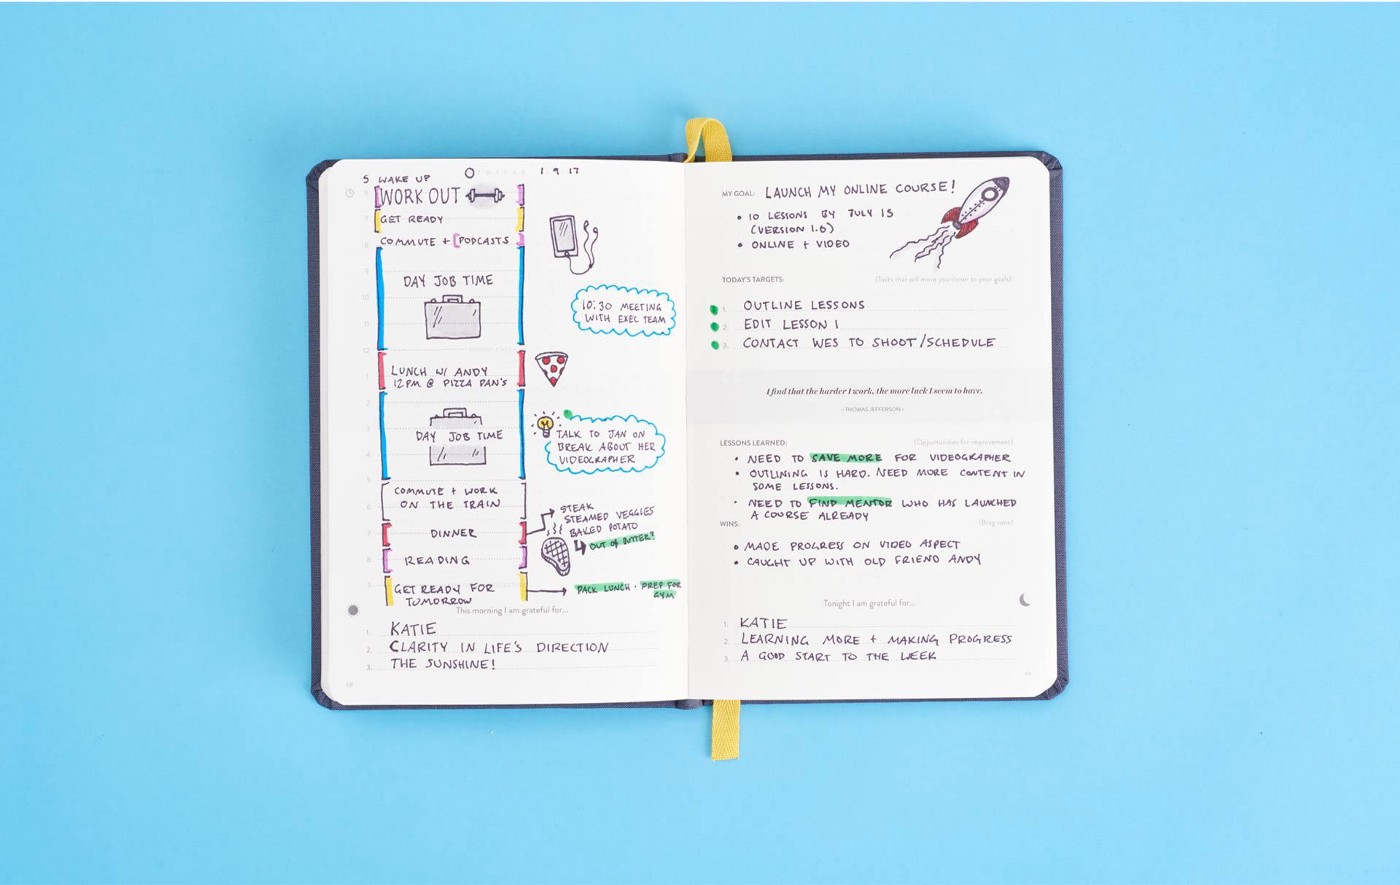 5 WAKE UP
1 9 17
WORK OUT
GET READY
COMMUTE + [PODCASTS]
8
9
DAY JOB TIME
10
11
10:30 MEETING
WITH EXEC TEAM
12
LUNCH W/ ANDY
12PM @ PIZZA PAN'S
1
2
3
DAY JOB TIME
4
TALK TO JAN ON
BREAK ABOUT HER
VIDEOGRAPHER
5
COMMUTE + WORK
ON THE TRAIN
6
7
DINNER
STEAK
STEAMED VEGGIES
BAKED POTATO
OUT OF BUTTER?
8
READING
9
GET READY FOR
TOMORROW
PACK LUNCH · PREP FOR
GYM
This morning I am grateful for...
1. KATIE
2. CLARITY IN LIFE'S DIRECTION
3. THE SUNSHINE!
MY GOAL: LAUNCH MY ONLINE COURSE!
• 10 LESSONS BY JULY 15
(VERSION 1.0)
• ONLINE + VIDEO
TODAY'S TARGETS: (Tasks that will move you closer to your goals)
1. OUTLINE LESSONS
2. EDIT LESSON 1
3. CONTACT WES TO SHOOT/SCHEDULE
I find that the harder I work, the more luck I seem to have.
- THOMAS JEFFERSON -
LESSONS LEARNED: (Opportunities for improvement)
• NEED TO SAVE MORE FOR VIDEOGRAPHER
• OUTLINING IS HARD. NEED MORE CONTENT IN
SOME LESSONS.
• NEED TO FIND MENTOR WHO HAS LAUNCHED
A COURSE ALREADY
WINS: (Brag much)
• MADE PROGRESS ON VIDEO ASPECT
• CAUGHT UP WITH OLD FRIEND ANDY
Tonight I am grateful for...
1. KATIE
2. LEARNING MORE + MAKING PROGRESS
3. A GOOD START TO THE WEEK